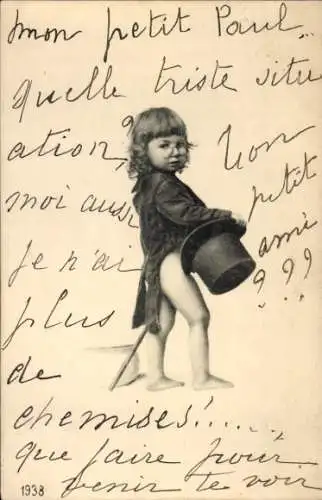 mon petit Paul...
quelle triste situ
ation,
moi aussi
je n'ai
plus
de
chemises!.....
que faire pour
venir te voir
ton
petit
ami
???
1938